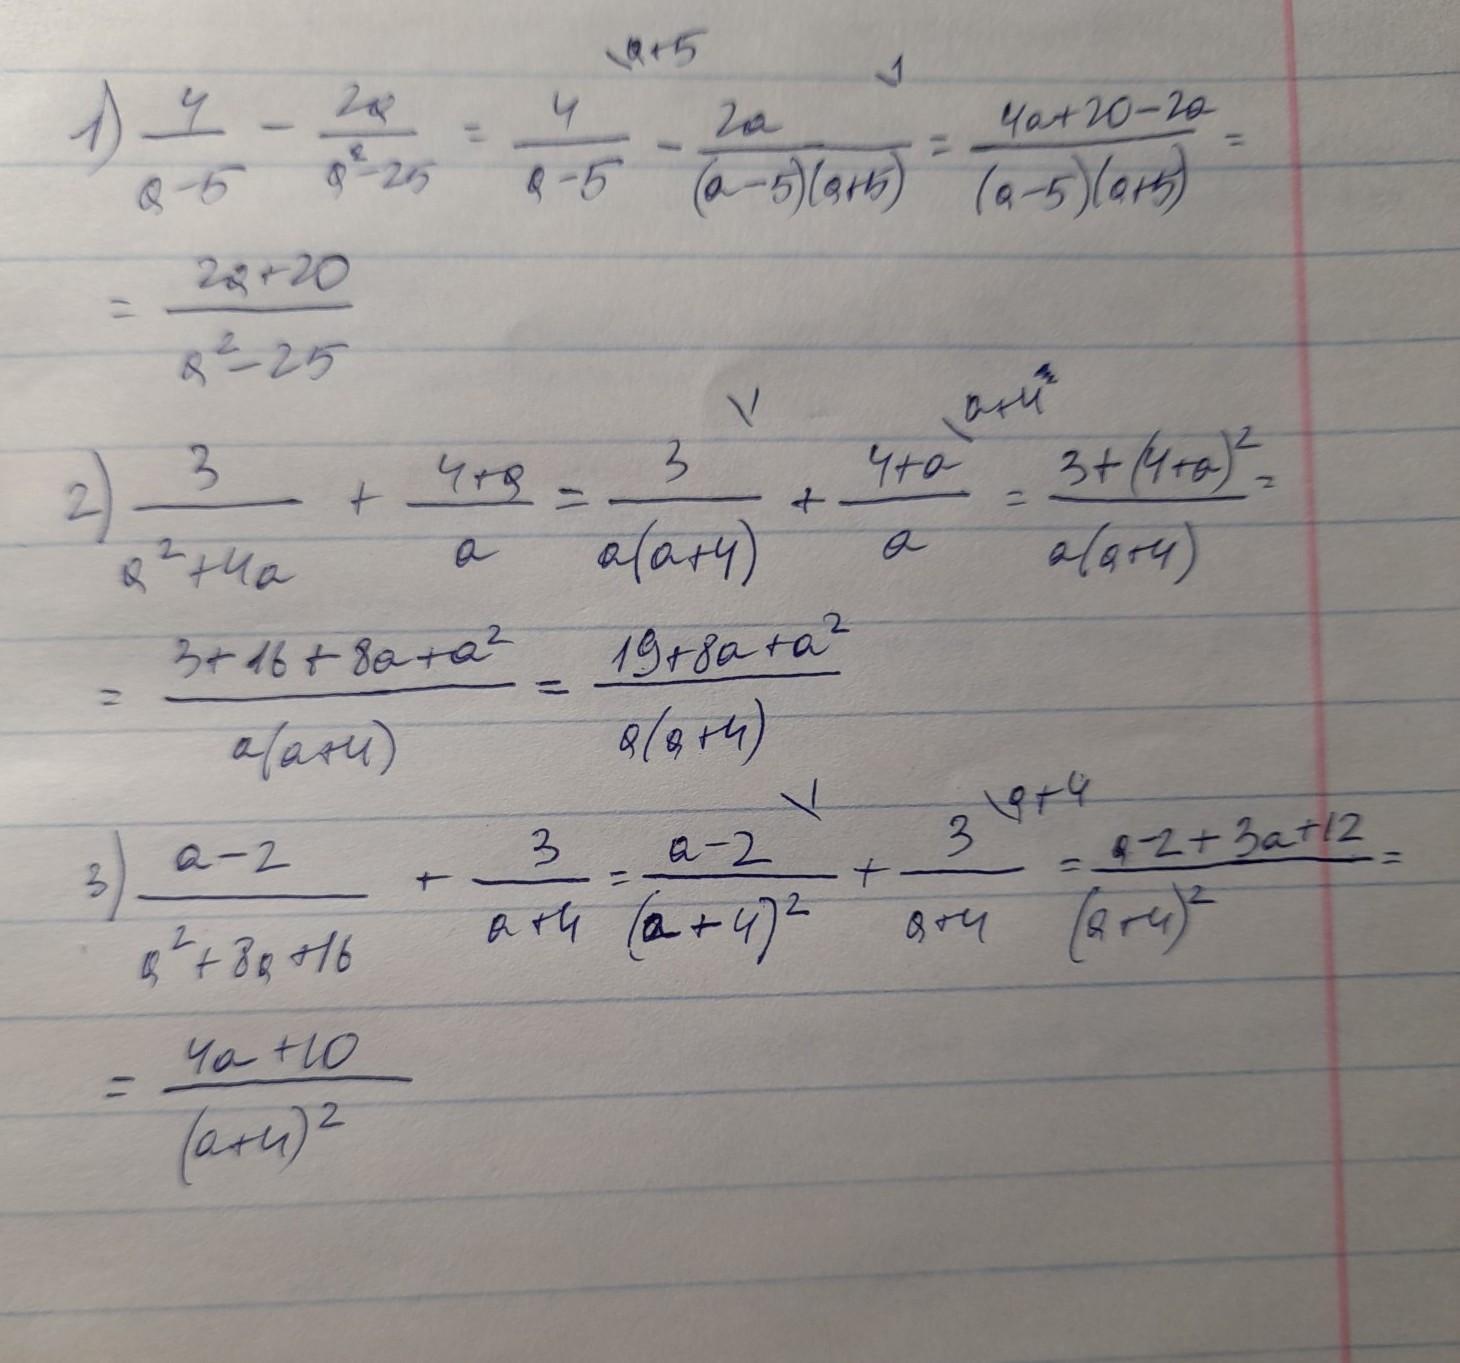 1) 4/(a-5) - 2a/(a²-25) = 4/(a-5) \a+5 - 2a/((a-5)(a+5)) \1 = (4a+20-2a)/((a-5)(a+5)) =
= (2a+20)/(a²-25)
2) 3/(a²+4a) + (4+a)/a = 3/(a(a+4)) \1 + (4+a)/a \a+4 = (3+(4+a)²)/(a(a+4)) =
= (3+16+8a+a²)/(a(a+4)) = (19+8a+a²)/(a(a+4))
3) (a-2)/(a²+8a+16) + 3/(a+4) = (a-2)/(a+4)² \1 + 3/(a+4) \a+4 = (a-2+3a+12)/(a+4)² =
= (4a+10)/(a+4)²